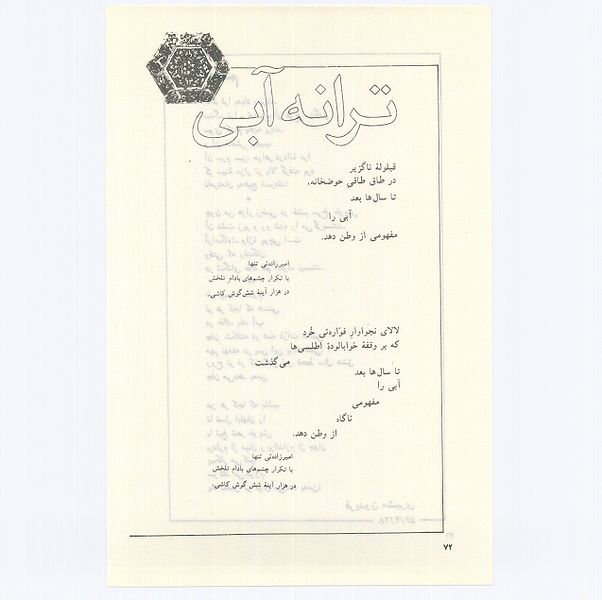 ترانه آبی
قیلولهٔ ناگزیر
در طاق طاقیِ حوضخانه،
تا سال‌ها بعد
آبی را
مفهومی از وطن دهد.
امیرزاده‌ئی تنها
با تکرار چشم‌های بادام تلخش
در هزار آینهٔ شش‌گوش کاشی.
لالای نجواوارِ فوّاره‌ئی خُرد
که بر وقفهٔ خوابالودهٔ اطلسی‌ها
می‌گذشت
تا سال‌ها بعد
آبی را
مفهومی
ناگاه
از وطن دهد.
امیرزاده‌ئی تنها
با تکرار چشم‌های بادام تلخش
در هزار آینهٔ شش گوش کاشی.
۷۲